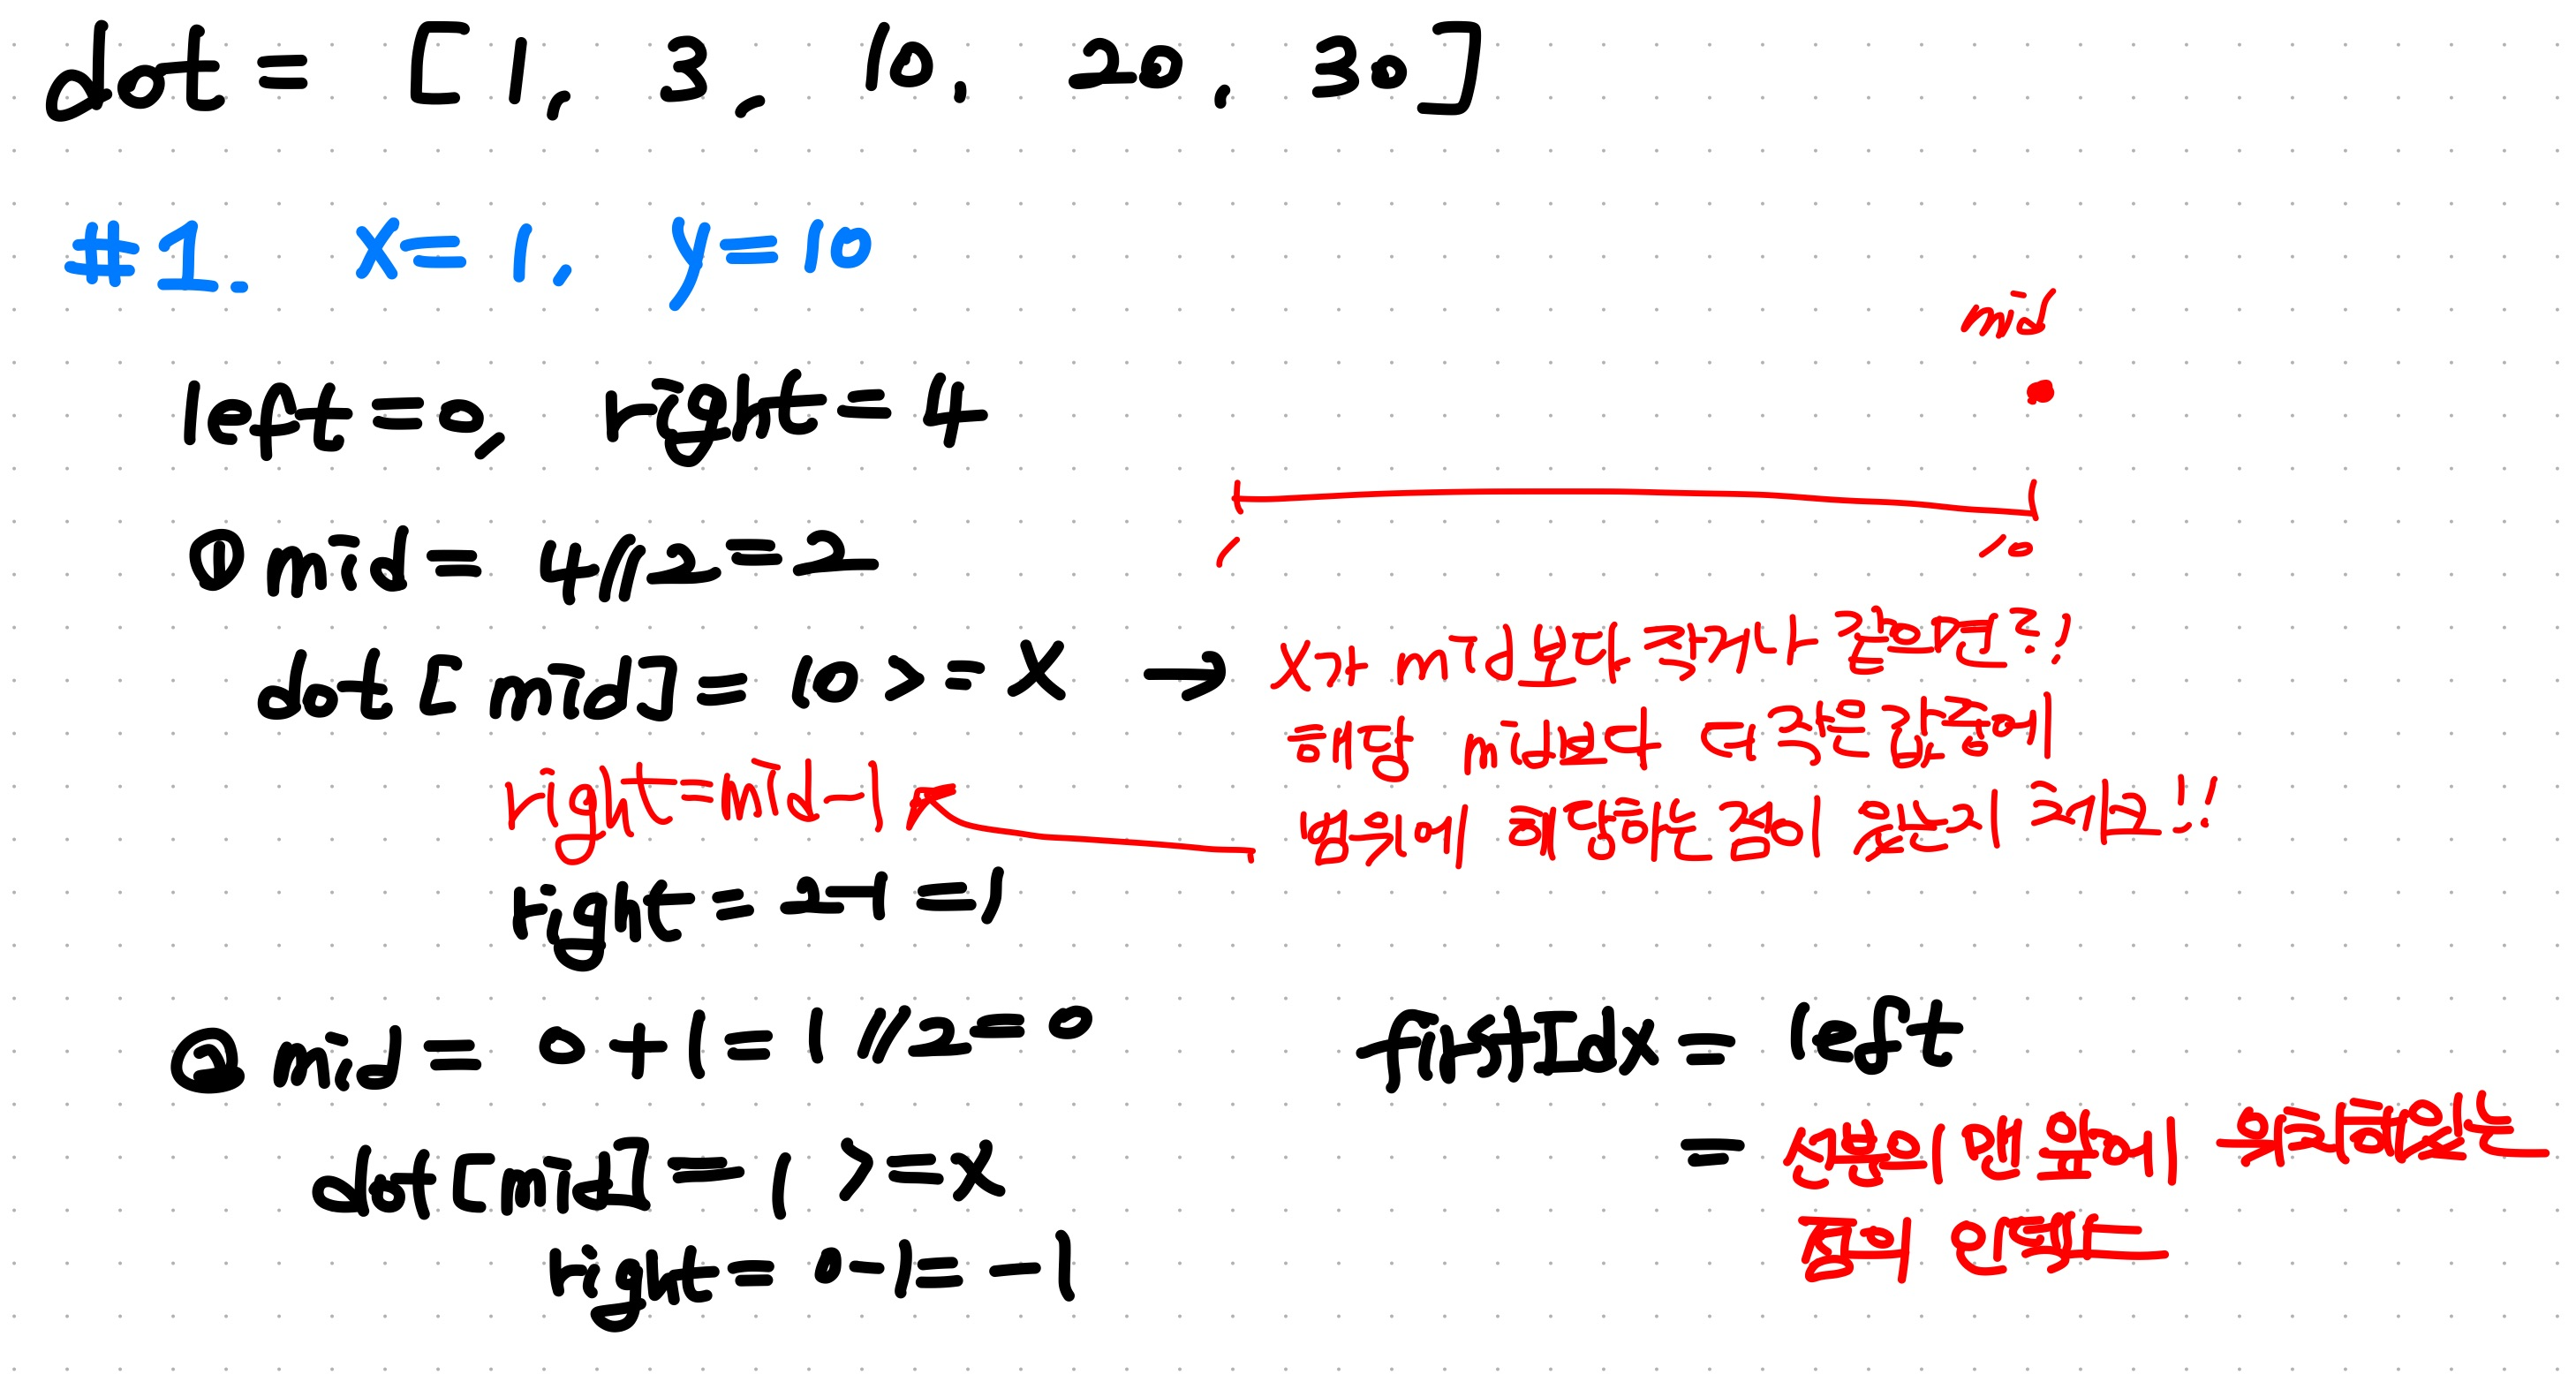 dot = [1, 3, 10, 20, 30]
#1. x=1, y=10
left=0, right=4
mid
1 10
① mid = 4//2=2
dot[mid]=10>=x → x가 mid보다 작거나 같으면?!
해당 mid보다 더 작은 값 중에
right=mid-1
범위에 해당하는 점이 있는지 체크!!
right=2-1=1
② mid = 0+1=1//2=0
dot[mid]=1>=x
right=0-1=-1
firstIdx = left
= 선분의 맨 앞에 위치해있는
점의 인덱스